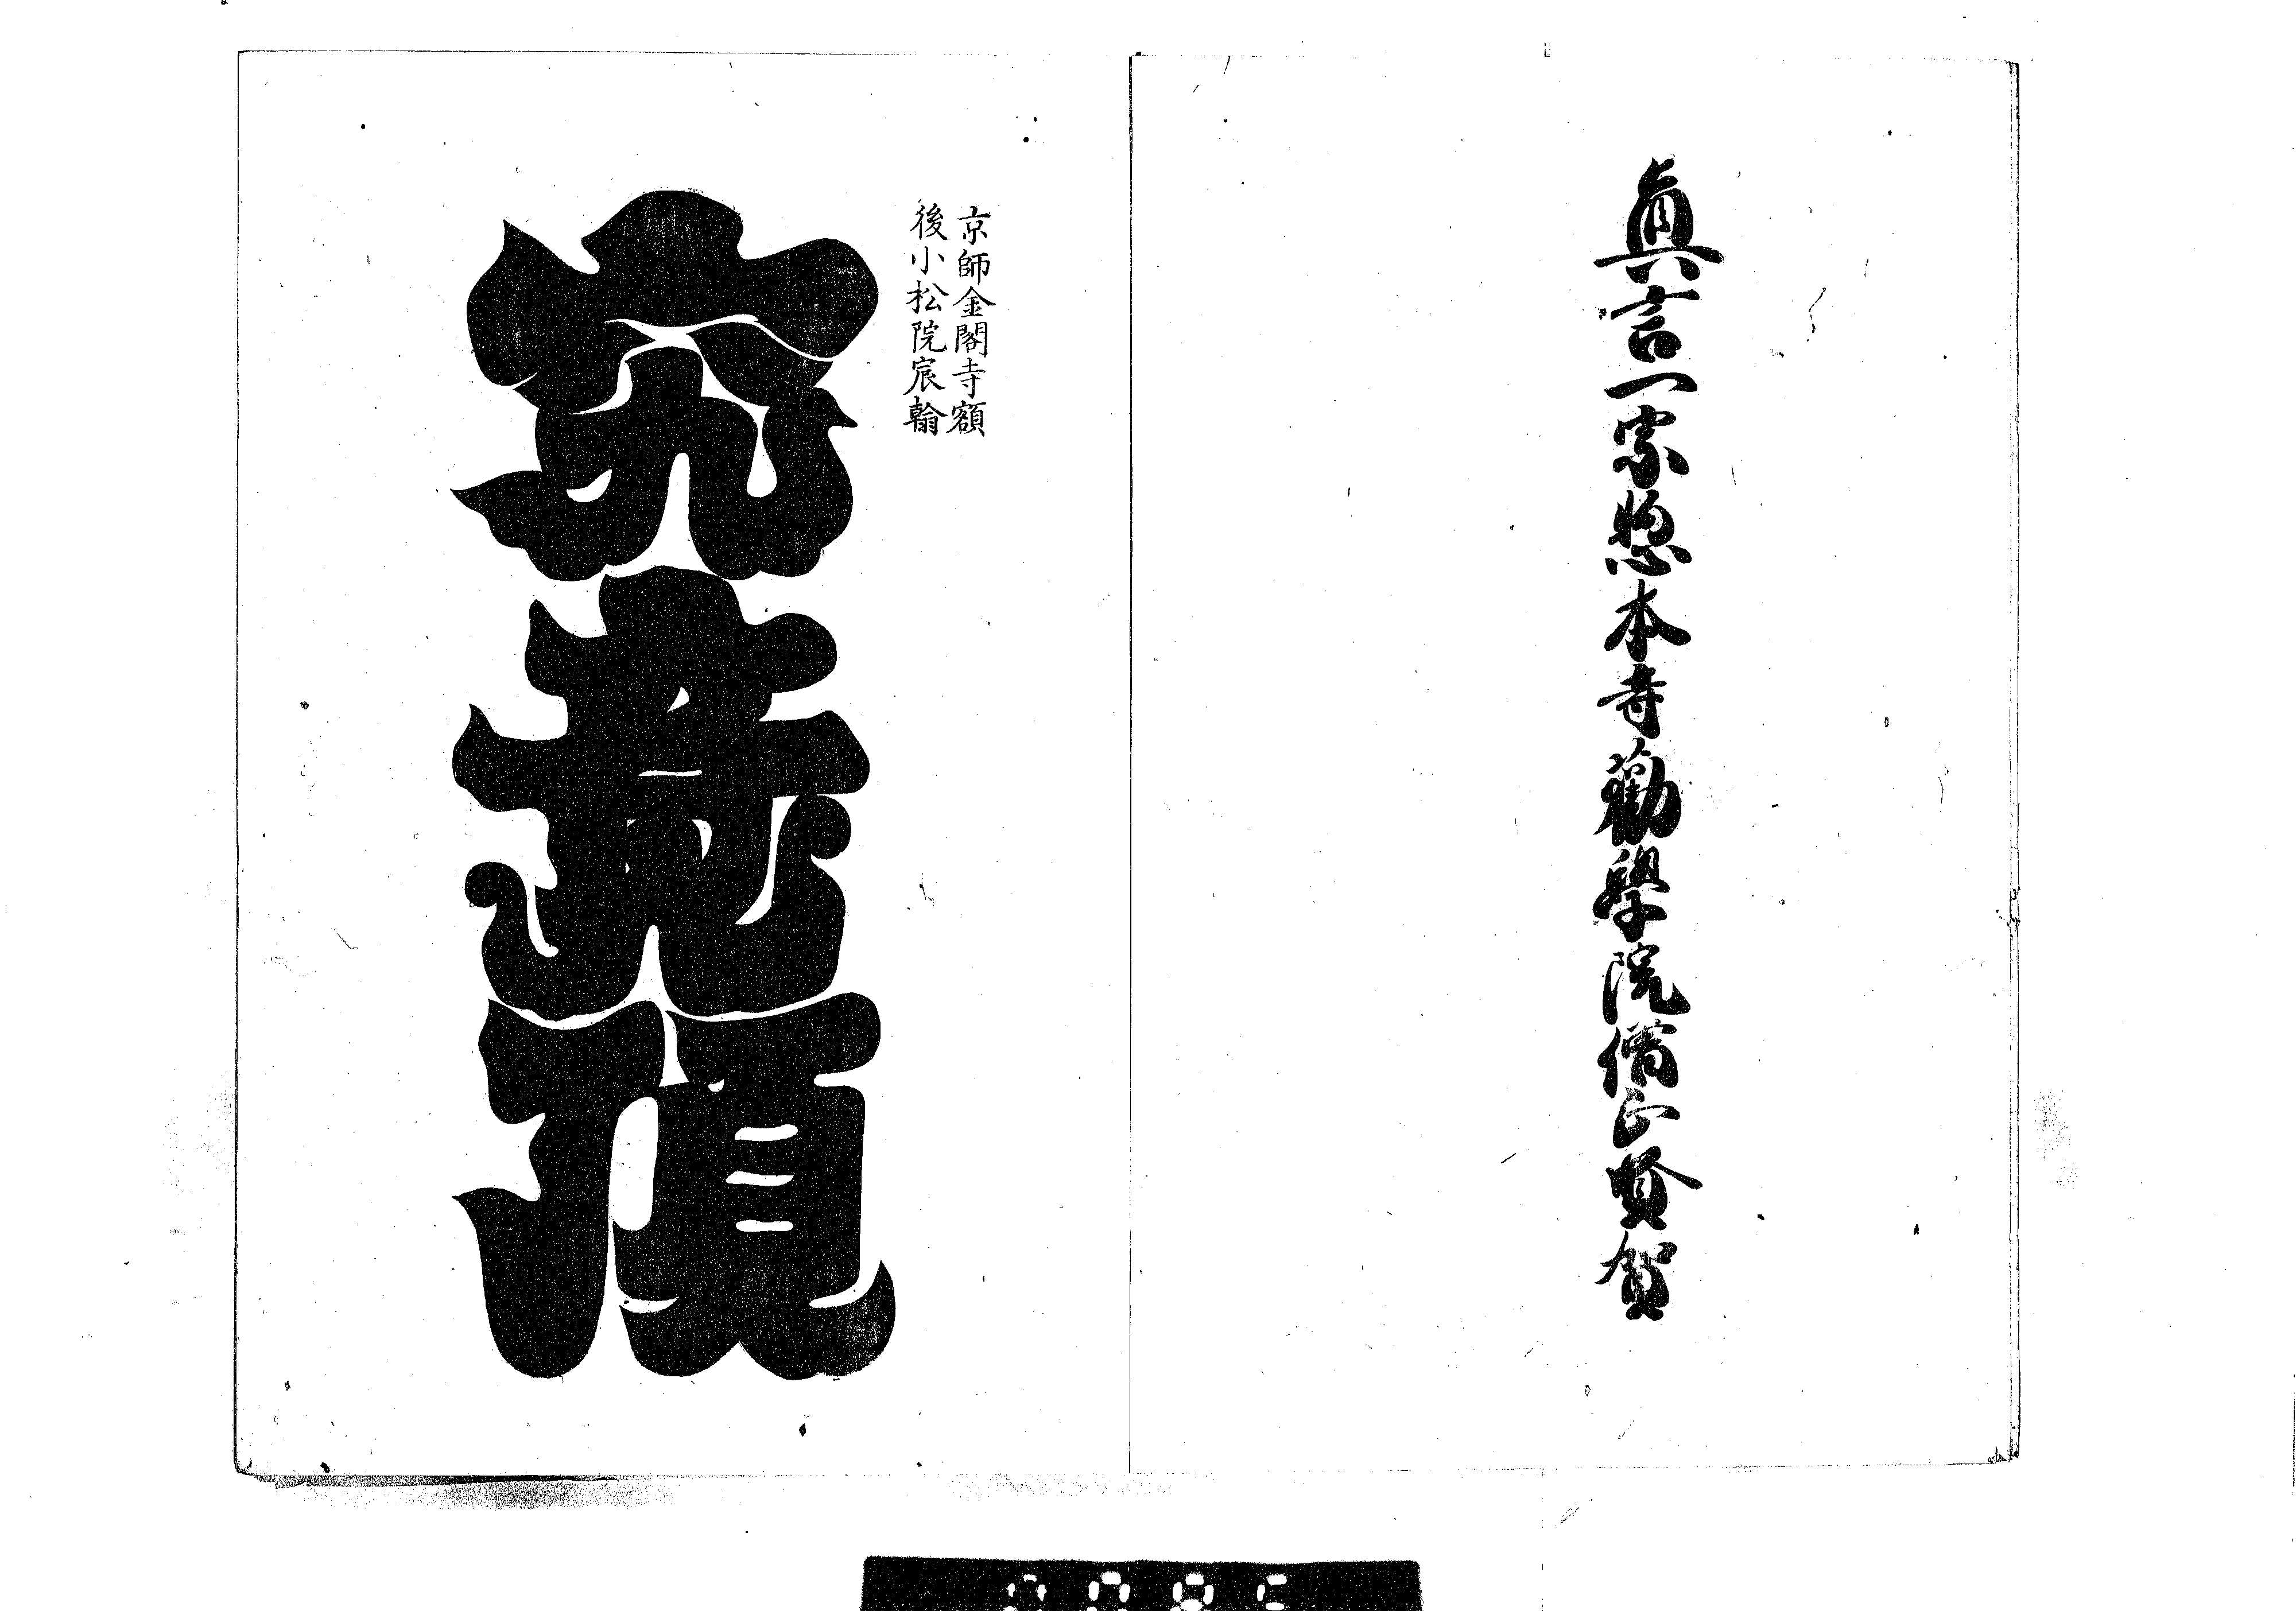 真言一宗惣本寺勸學院僧正賢賀
京師金閣寺額
後小松院宸翰
究竟頂